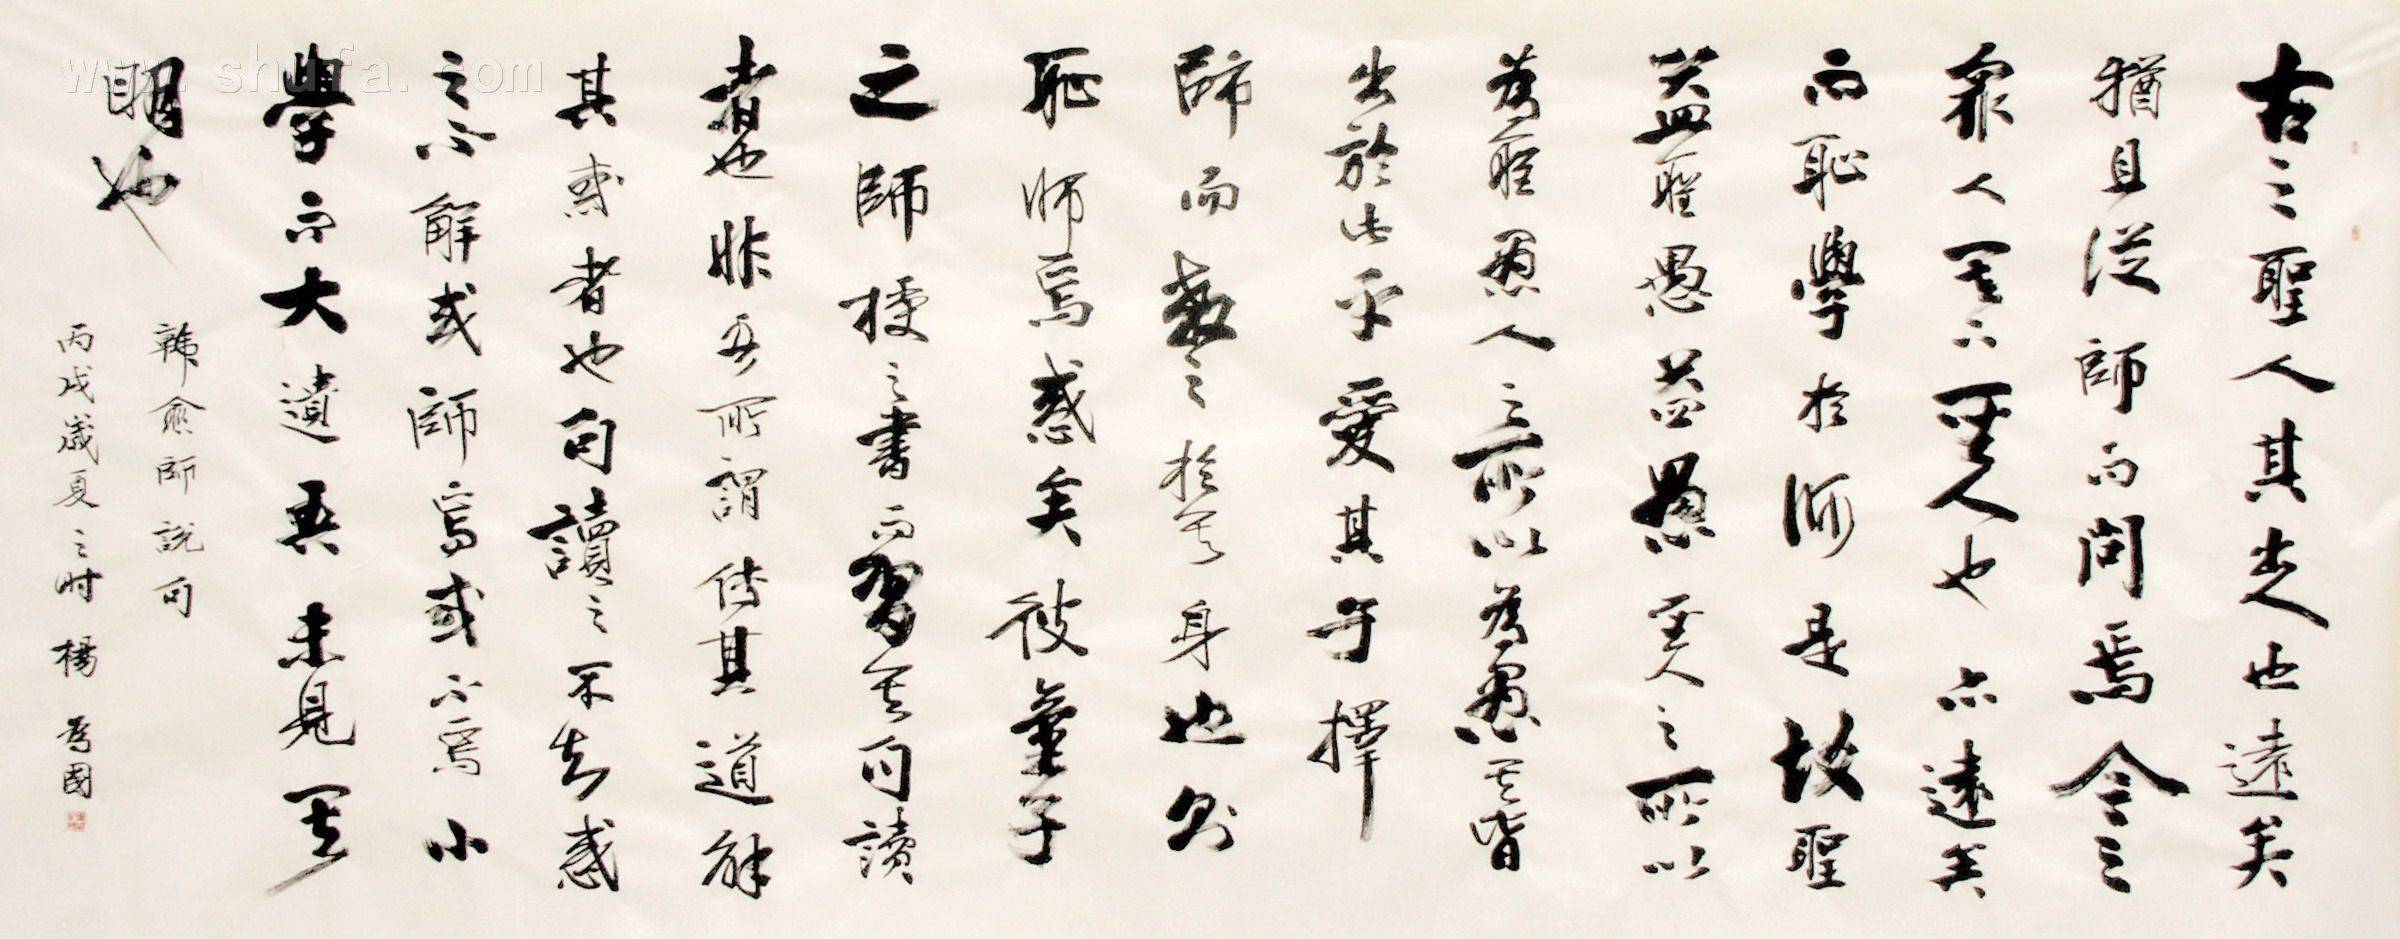 古之聖人其出人也遠矣
猶且從師而問焉今之
衆人其下聖人也亦遠矣
而恥學於師是故聖
益聖愚益愚聖人之所以
為聖愚人之所以為愚其皆
出於此乎愛其子擇
師而教之於其身也則
恥師焉惑矣彼童子
之師授之書而習其句讀
者也非吾所謂傳其道解
其惑者也句讀之不知惑
之不解或師焉或不焉小
學而大遺吾未見其
明也
韓愈師說句
丙戌歲夏之时 楊為國
www.shufa.com